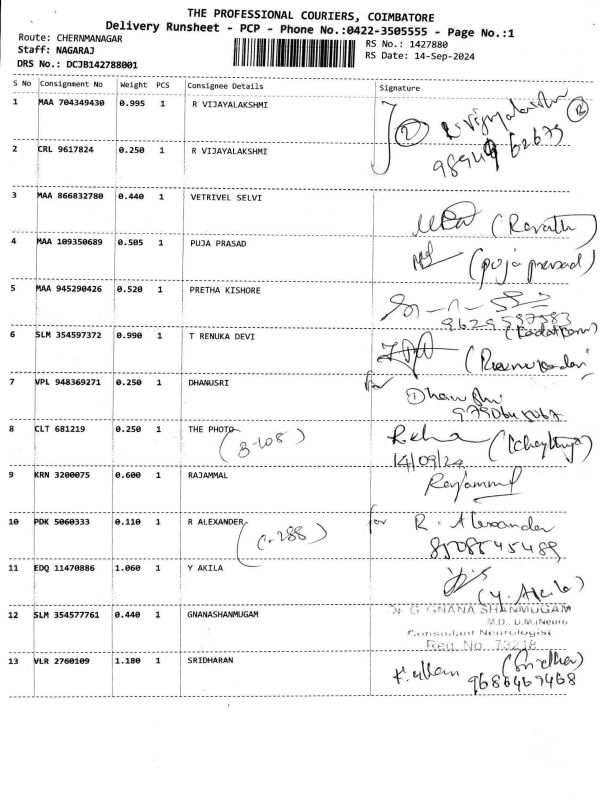 THE PROFESSIONAL COURIERS, COIMBATORE
Delivery Runsheet - PCP - Phone No.:0422-3505555 - Page No.:1
Route: CHERNMANAGAR
RS No.: 1427880
Staff: NAGARAJ
RS Date: 14-Sep-2024
DRS No.: DCJB142788001
S No Consignment No Weight PCS Consignee Details Signature
1 MAA 704349430 0.995 1 R VIJAYALAKSHMI
2 CRL 9617824 0.250 1 R VIJAYALAKSHMI
3 MAA 866832780 0.440 1 VETRIVEL SELVI (Revathi)
4 MAA 109350689 0.505 1 PUJA PRASAD (puja prasad)
5 MAA 945290426 0.520 1 PRETHA KISHORE
6 SLM 354597372 0.990 1 T RENUKA DEVI
7 VPL 948369271 0.250 1 DHANUSRI for
8 CLT 681219 0.250 1 THE PHOTO (B-108) Rekha
14/09/24
9 KRN 3200075 0.600 1 RAJAMMAL Rajammal
10 PDK 5060333 0.110 1 R ALEXANDER (C-288) for R. Alexander
8508545489
11 EDQ 11470886 1.060 1 Y AKILA (Y. Akila)
12 SLM 354577761 0.440 1 GNANASHANMUGAM G GNANA SHANMUGAM
M.D., D.M.(Neuro
Consultant Neurologist
Reg. No. 73218
13 VLR 2760109 1.180 1 SRIDHARAN (Sridhar)
9686467468